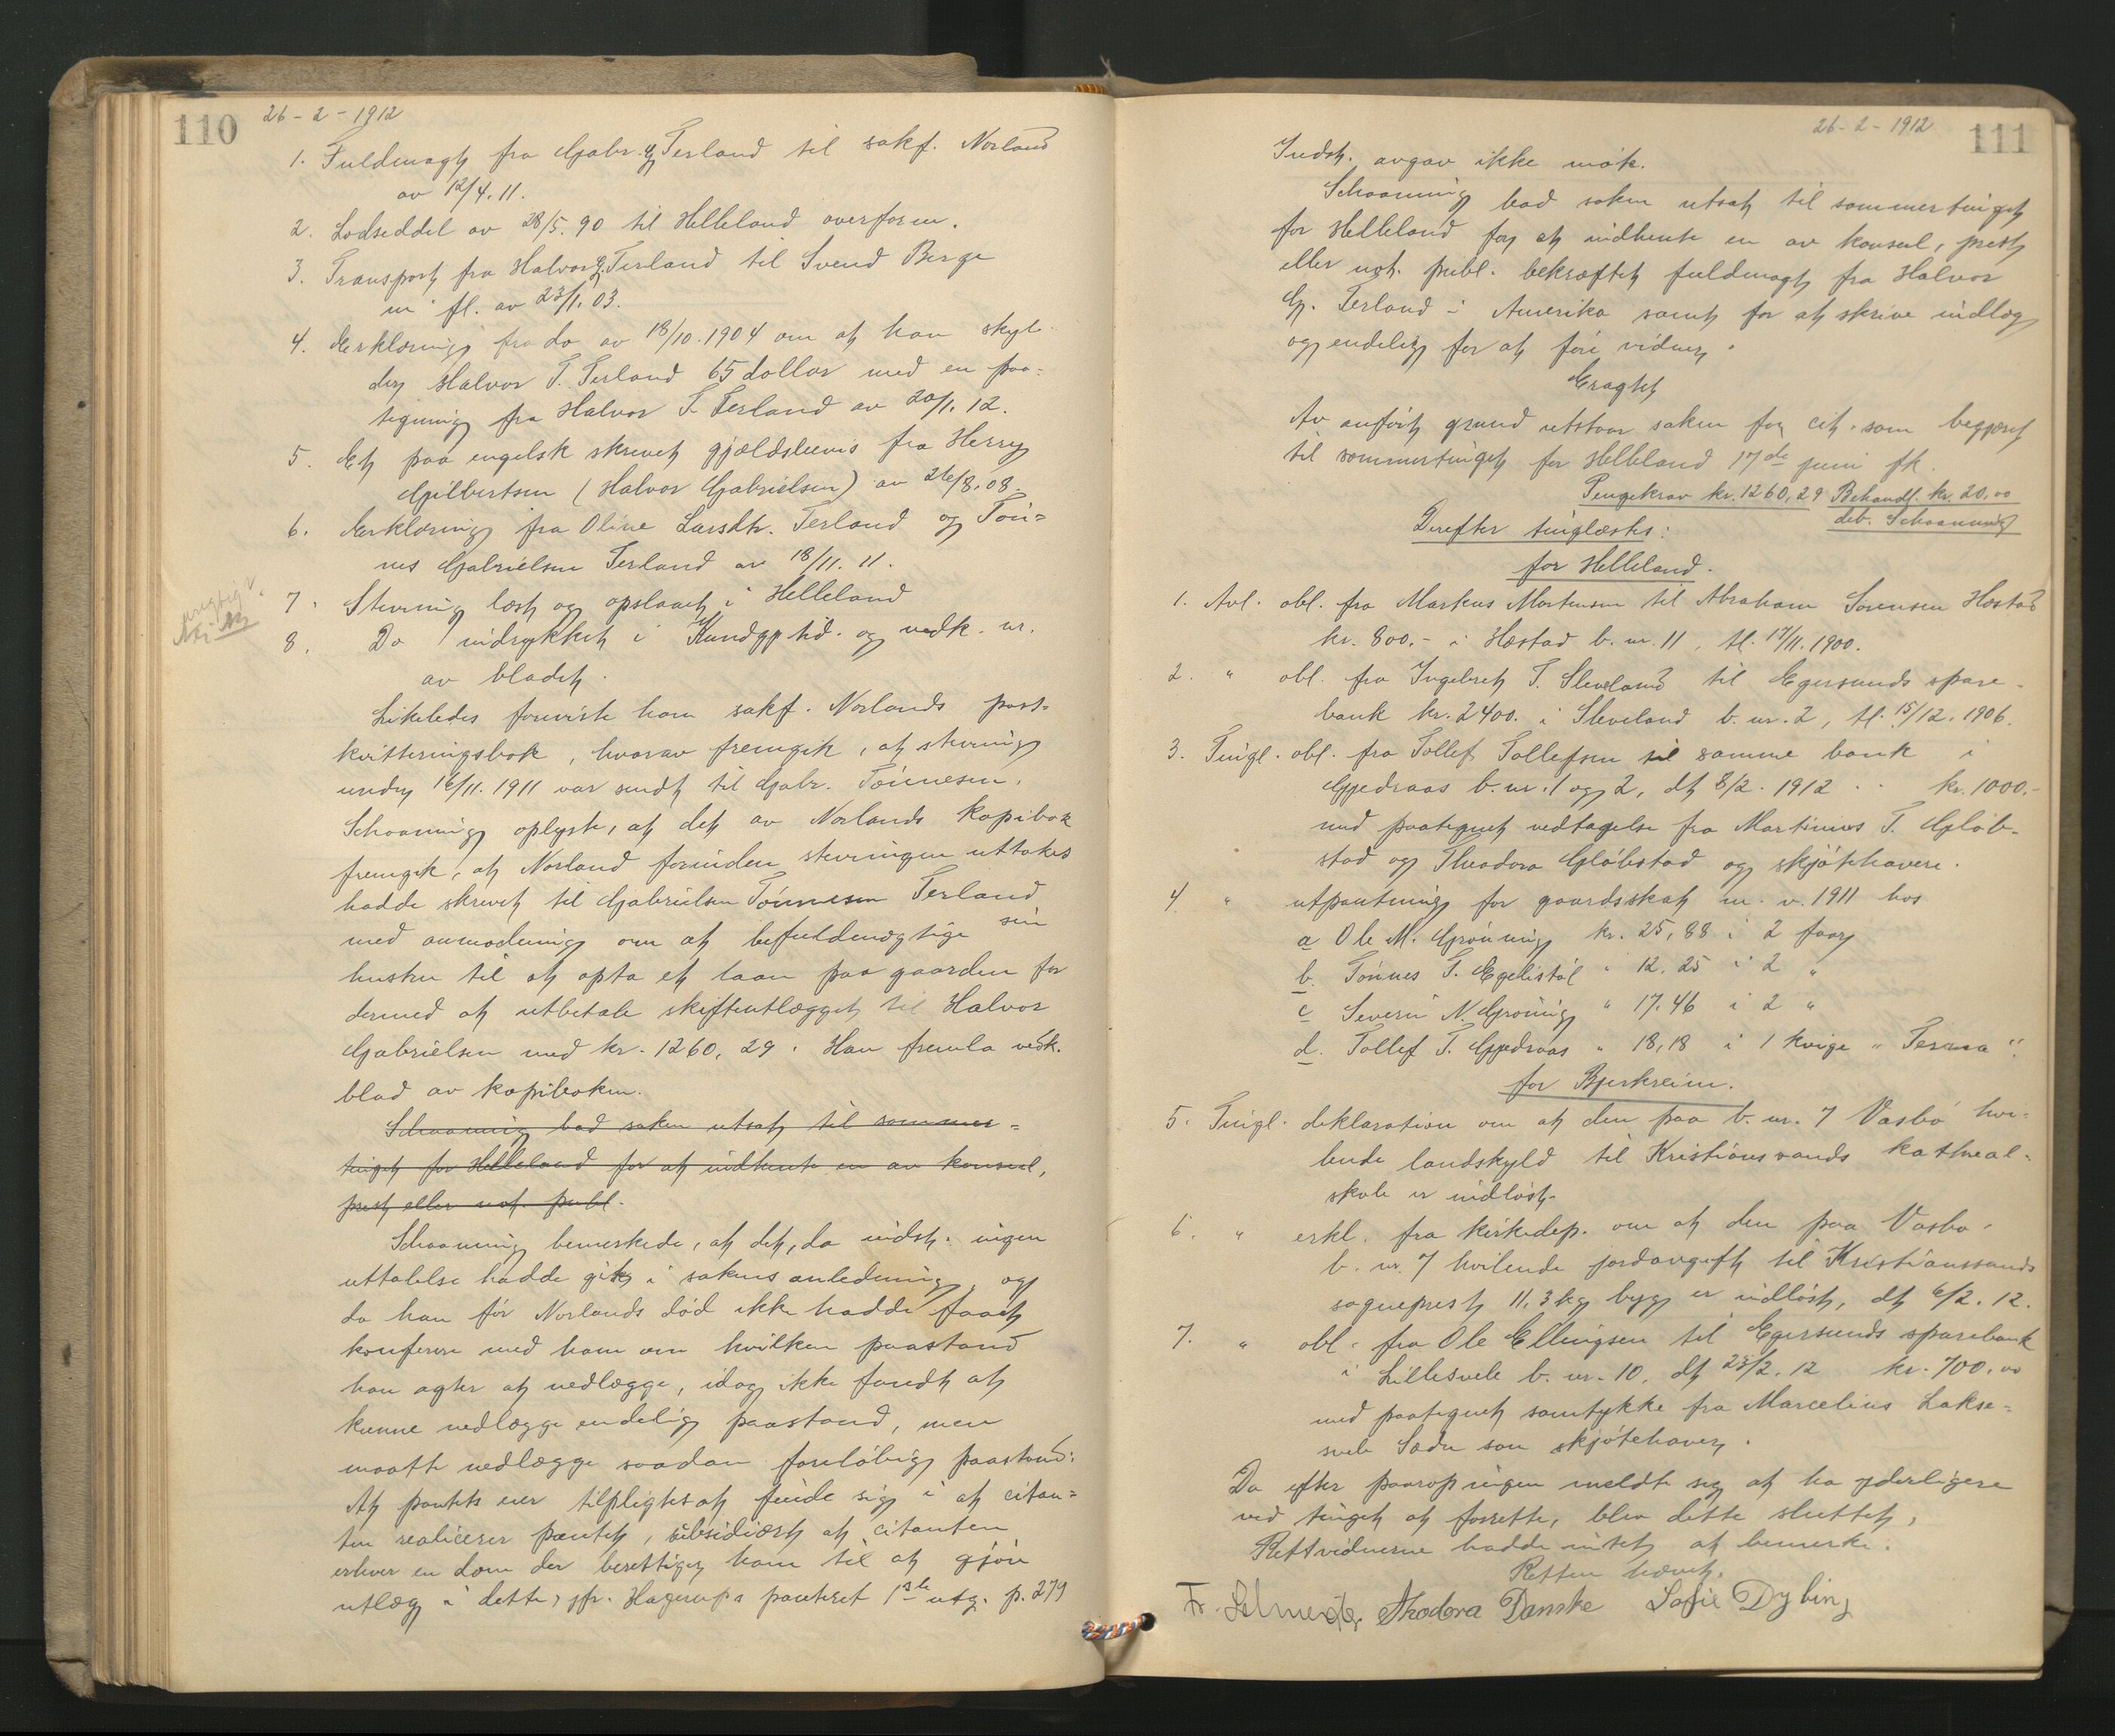 110
26-2-1912
1. Fuldmagt fra Gabr. G. Terland til sakf. Norland
av 12/4. 11.
2. Lodseddel av 28/5. 90 til Helleland overform.
3. Transport fra Halvor G. Terland til Svend Berge
m. fl. av 23/1. 03.
4. Erklæring fra do av 18/10. 1904 om at han skyl-
der Halvor T. Terland 65 dollar med en paa-
tegning fra Halvor T. Terland av 20/1. 12.
5. Et paa engelsk skrevet gjældsbevis fra Henry
Gilbertsen (Halvor Gabrielsen) av 26/8. 08.
6. Erklæring fra Oline Larsdtr. Terland og Tön-
nes Gabrielsen Terland av 18/11. 11.
7. Stevning læst og opslaaet i Helleland
8. Do indrykket i Kundgj.tid. og vedk. nr.
av bladet.
Likeledes foreviste han sakf. Norlands post-
kvitteringsbok, hvorav fremgik, at stevning
under 16/11. 1911 var sendt til Gabr. Tönnesen.
Schaanning oplyste, at det av Norlands kopibok
fremgik, at Norland forinden stevningen uttokes
hadde skrevet til Gabrielsen Tönnesen Terland
med anmodning om at befuldmægtige sin
hustru til at opta et laan paa gaarden for
dermed at utbetale skifteutlægget til Halvor
Gabrielsen med kr. 1260,29. Han fremla vedk.
blad av kopiboken.
Schaanning bad saken utsat til sommer-
tinget for Helleland for at indhente en av konsul,
prest eller not. publ.
Schaanning bemerkede, at det, da indst. ingen
uttalelse hadde git i sakens anledning, og
da han för Norlands död ikke hadde faaet
konferere med ham om hvilken paastand
han agter at nedlægge, idag ikke fandt at
kunne nedlægge endelig paastand, men
maatte nedlægge saadan foreløbig paastand:
At pantets eier tilpligtes at finde sig i at citan-
ten realiserer pantet, subsidiært at citanten
erhver en dom der berettiger ham til at gjöre
utlæg i dette, jfr. Hagerups panteret 1ste utg. p. 279
26-2-1912
111
Indst. avgav ikke möte.
Schaanning bad saken utsat til sommertinget
for Helleland for at indhente en av konsul, prest
eller not. publ. bekræftet fuldmagt fra Halvor
G. Terland i Amerika samt for at skrive indlæg
og endelig for at före vidner.
Eragtet
Av anført grund utstaar saken for cit. som begjært
til sommertinget for Helleland 17de juni fk.
Pengekrav kr. 1260,29 Behandl. kr. 20,00
deb. Schaanning
Derefter tinglæstes:
for Helleland.
1. Avl. obl. fra Markus Mortensen til Abraham Sörensen Hæstad
kr. 800.- i Hæstad b. nr. 11, tl. 17/11. 1900.
2. " obl. fra Ingebret T. Sleveland til Egersunds spare-
bank kr. 2400. i Sleveland b. nr. 2, tl. 15/12. 1906.
3. Tingl. obl. fra Tollef Tollefsen til samme bank i
Gjedraas b. nr. 1 og 2, dt 8/2. 1912 kr. 1000.-
med paategnet vedtagelse fra Martinius T. Glöb-
stad og Theodora Glöbstad og skjötehavere.
4. " utpantning for gaardsskat m. v. 1911 hos
a Ole M. Gröning kr. 25,88 i 2 faar
b. Tönnes T. Egelistöl " 12.25 i 2 "
c Severin N. Gröning " 17.46 i 2 "
d. Tollef T. Gjedraas " 18,18 i 1 kvige "Terna".
for Bjerkreim.
5. Tingl. deklaration om at den paa b. nr. 7 Vasbö hvi-
lende landskyld til Kristianssands kathedral-
skole er indløst.
6. " erkl. fra kirkedep. om at den paa Vasbö
b. nr. 7 hvilende jordavgift til Kristianssands
sogneprest 11,3 kg byg er indløst, dt 6/2. 12.
7. " obl. fra Ole Ellingsen til Egersunds sparebank
i Lillesvele b. nr. 10, dt 23/2. 12 kr. 700.00
med paategnet samtykke fra Marcelius Lakse-
svele som skjötehaver.
Da efter paaropingen meldte sig at ha yderligere
ved tinget at forrette, blev dette sluttet.
Rettvidnerne hadde intet at bemerke.
Retten hævet.
Theodora Danske Sofie Dybing